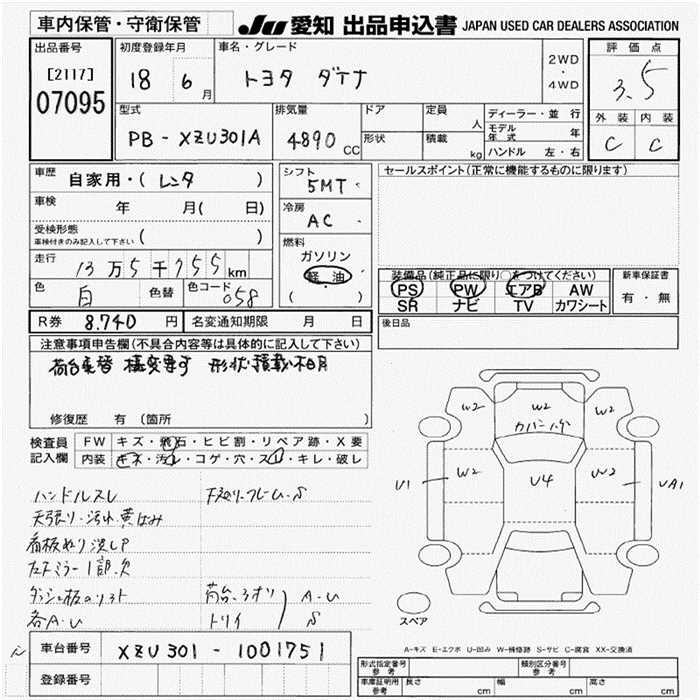 車内保管・守衛保管 JU 愛知 出品申込書 JAPAN USED CAR DEALERS ASSOCIATION
出品番号 初度登録年月 車名・グレード 2WD・4WD 評価点
[2117]
07095 18 6月 トヨタ ダイナ 3.5
外装 内装
C C
型式 排気量 ドア 定員 人 ディーラー・並行
PB-XZU301A 4890cc 形状 積載 kg モデル年式 年
ハンドル 左・右
車歴 自家用・(レンタ) シフト 5MT セールスポイント(正常に機能するものに限ります)
車検 年 月( 日) 冷房 AC
受検形態 車検付きのみ記入して下さい( 燃料 ガソリン
走行 13万5千755km 軽油
( )
色 白 色替 色コード 058
装備品(純正品に限り○をつけてください) 新車保証書
PS PW エアB AW 有・無
SR ナビ TV カワシート
R券 8.740円 名変通知期限 月 日 後日品
注意事項申告欄(不具合内容等は具体的に記入して下さい)
荷台乗替 構変要す 形状積載不明
修復歴 有 (箇所
検査員記入欄 FW キズ・飛石・ヒビ割・リペア跡・X要
内装 キズ・汚レ・コゲ・穴・スレ・キレ・破レ
ハンドルスレ 下廻り・フレーム・S
天張り・汚れ・黄ばみ
看板ぬり潰しP
左ミラー1部欠
荷台、
各A・U トリイ A・U S
W2 W2 W2
カバー
U1 W2 U4 W2 UA1
スペア
A-キズ E-エクボ U-凹み W-補修跡 S-サビ C-腐食 XX-交換済
車台番号 XZU301-1001751
登録番号
形式指定番号 参考 類別区分番号 参考
車庫証明用 参考 長さ cm 幅 cm 高さ cm